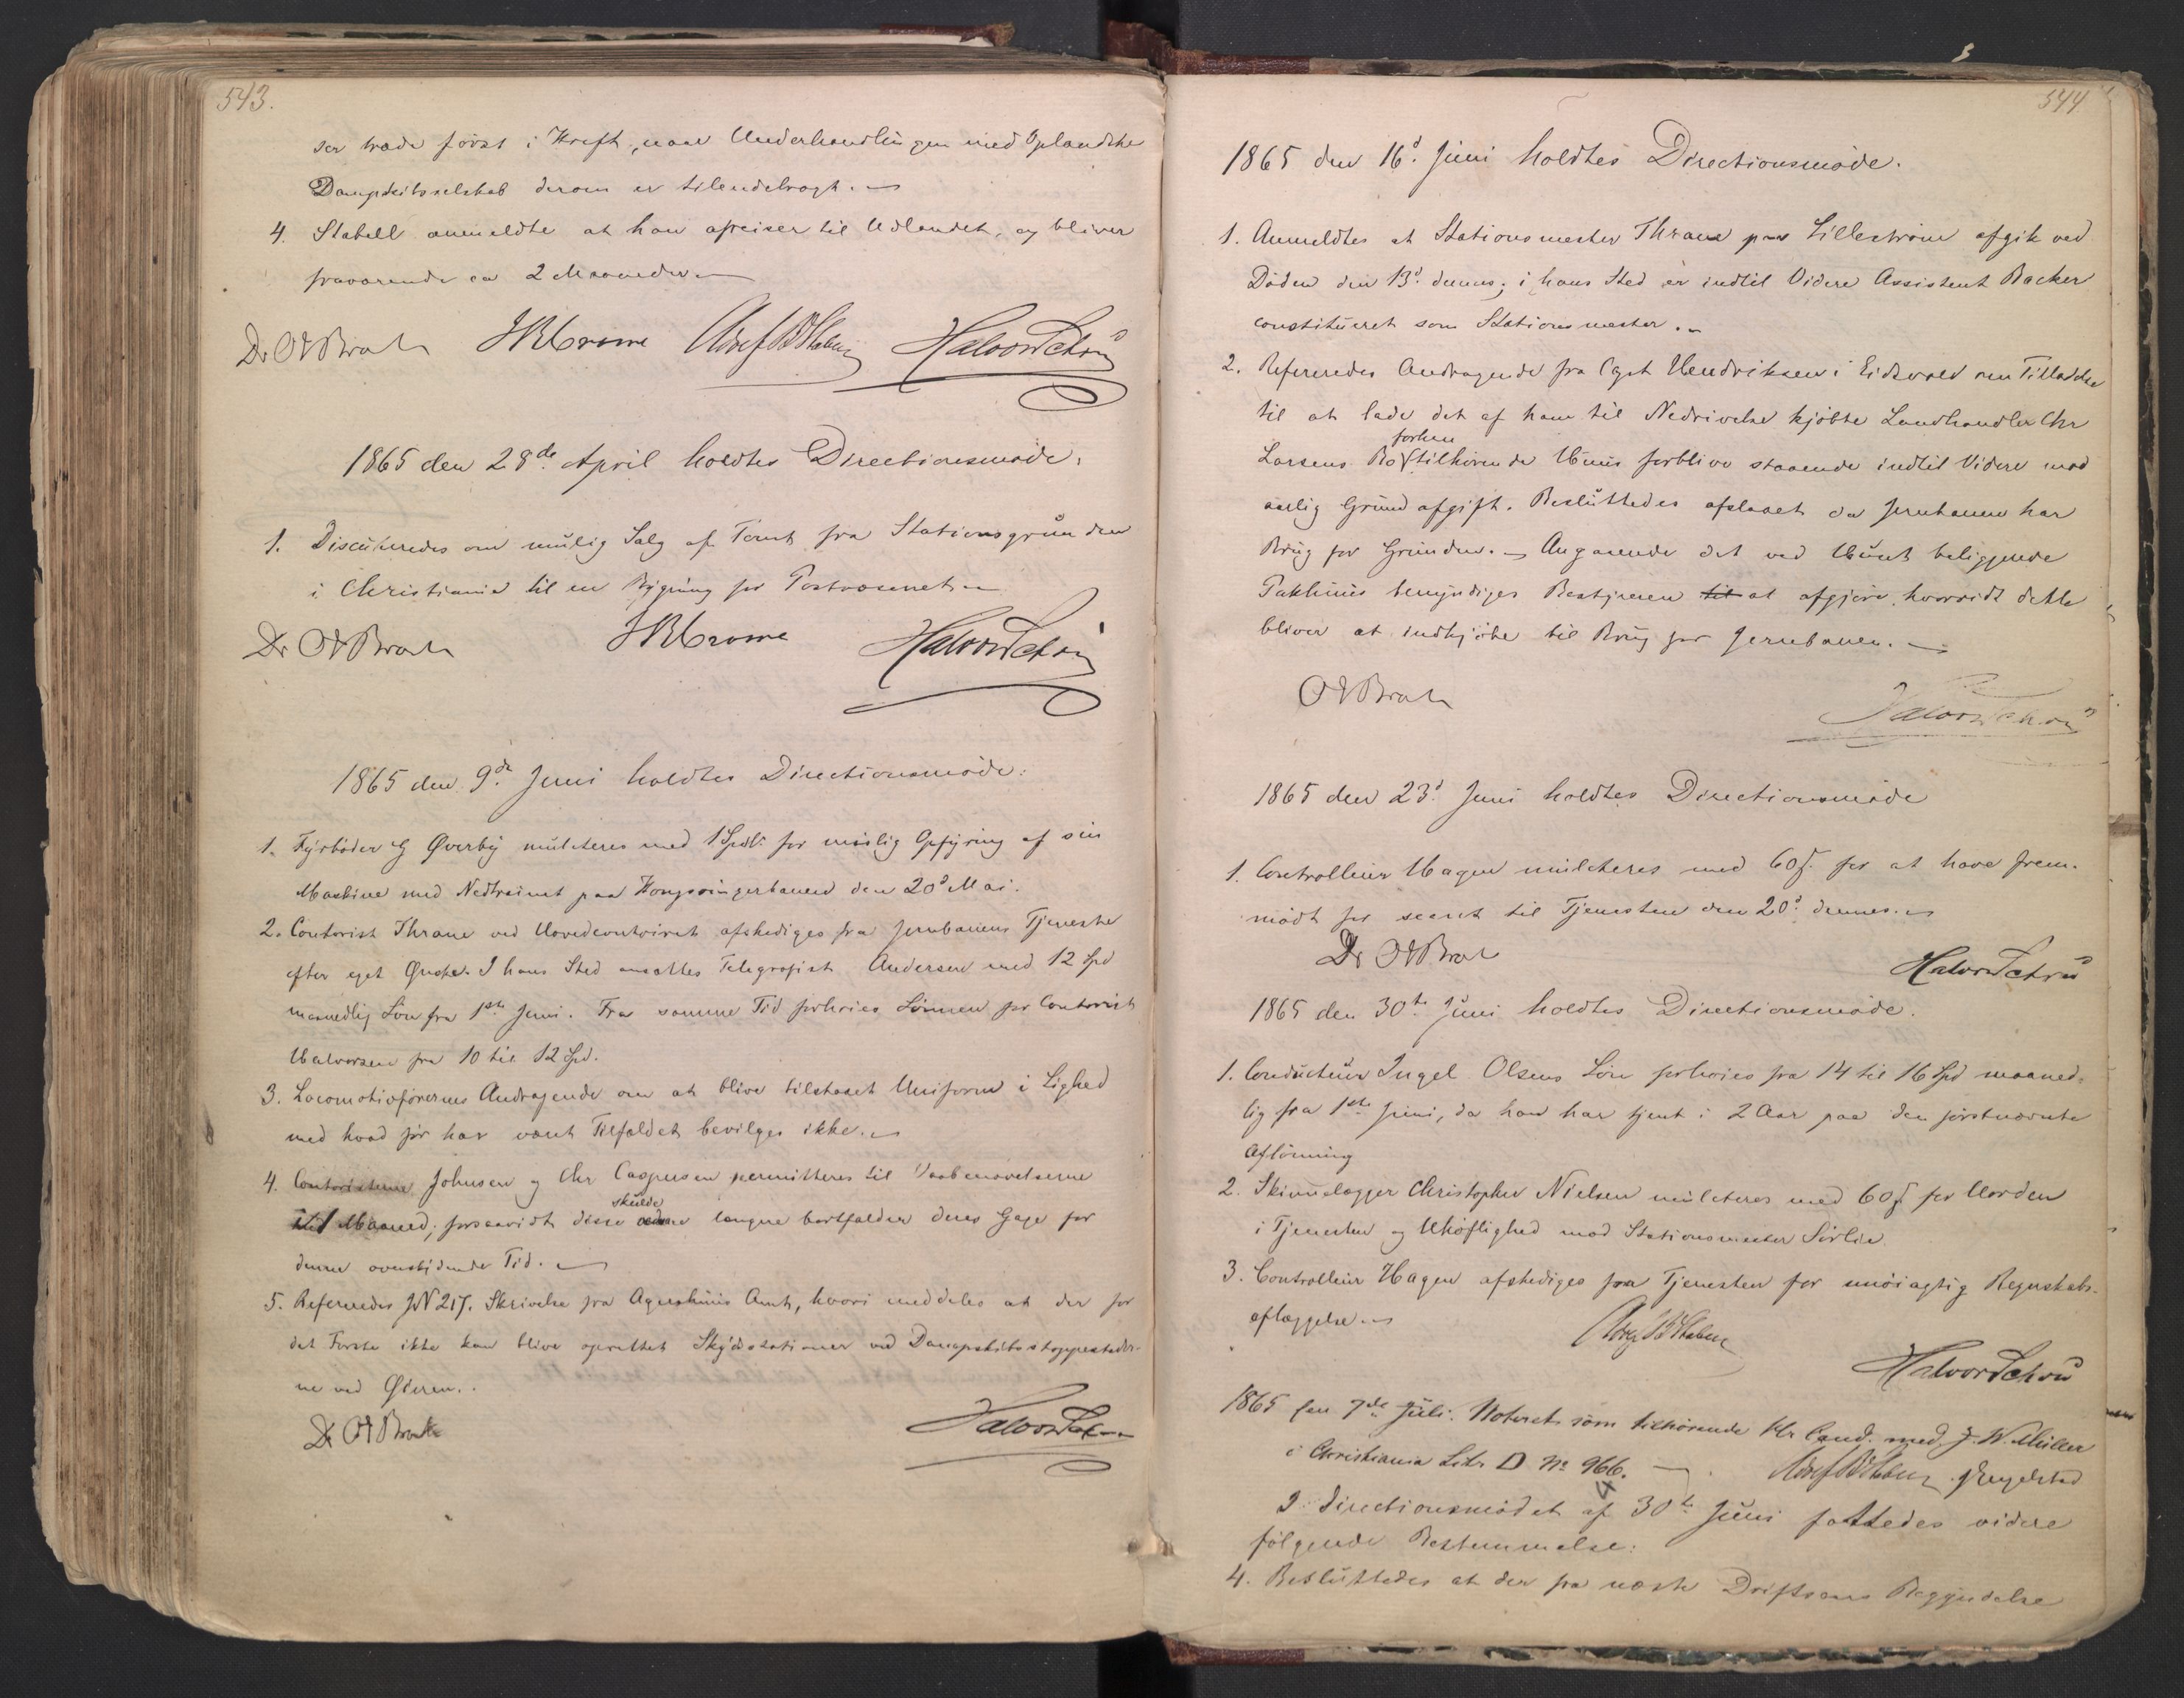 543.
der træde først i Kraft, naar Underhandlingen med Oplandske
Dampskibsselskab derom er tilendebragt.
4. Stabell anmeldte at han afreiser til Udlandet, og bliver
fraværende ca 2 Maaneder
Dr OJBroch JBCrowe Halvor Schou
1865 den 28de April holdtes Directionsmøde.
1. Discuteredes om mulig Salg af Tomt fra Stationsgrunden
i Christiania til en Bygning for Postvæsenet.
Dr OJBroch JBCrowe Halvor Schou
1865 den 9de Juni holdtes Directionsmøde:
1. Fyrbøder G Øverby mulcteres med 1 Spdl. for uvislig Opfyring af sin
Maskine med Nedtrainet paa Kongsvingerbanen den 20d Mai.
2. Contorist Thrane ved Hovedcontoiret afskediges fra Jernbanens Tjeneste
efter eget Ønske. I hans Sted ansattes Telegrafist Andersen med 12 Spd
maanedlig Løn fra 1ste Juni. Fra samme Tid forhøies Lønnen for Contorist
Halvorsen fra 10 til 12 Spd.
3. Locomotivførernes Andragende om at blive tilstaaet Uniform i Lighed
med hvad før har været Tilfældet bevilges ikke.
4. Contoristerne Johnsen og Chr Caspersen permitteres til Vaabenøvelserne
skulde
1 Maaned; forsaavidt disse længere bortfalder deres Gage for
denne overskydende Tid.
5. Refereredes JN 217. Skrivelse fra Agershuus Amt, hvori meddeles at der for
det Første ikke kan blive oprettet Skydsstationer ved Dampskibsstoppesteder-
ne ved Øieren.
Dr OJBroch Halvor Schou
544
1865 den 16d. Juni holdtes Directionsmøde.
1. Anmeldtes at Stationsmester Thrane paa Lillestrøm afgik ved
Døden den 13d. dennes; i hans Sted er indtil Videre Assistent Backer
constitueret som Stationsmester.
2. Refereredes Andragende fra Capt Hendriksen i Eidsvold om Tilladelse
til at lade det af ham til Nedrivelse kjøbte Landhandler Chr
forhen
Larsens Bo tilhørende Huus forblive staaende indtil Videre mod
aarlig Grundafgift. Besluttedes afslaaet da Jernbanen har
Brug for Grunden. Angaaende det ved Huset beliggende
Pakhuus bemyndiges Bestyreren til at afgjøre, hvorvidt dette
bliver at indkjøbe til Brug for Jernbanen.
OJBroch Halvor Schou
1865 den 23d. Juni holdtes Directionsmøde
1. Controlleur Hagen mulcteres med 60 ß. for at have frem-
mødt for seent til Tjenesten den 20d. dennes.
Dr OJBroch
Halvor Schou
1865 den 30te Juni holdtes Directionsmøde.
1. Conducteur Ingel Olsens Løn forhøies fra 14 til 16 Spd maaned-
lig fra 1ste Juni, da han har tjent i 2 Aar paa den førstnævnte
Aflønning
2. Skinnelægger Christopher Nielsen mulcteres med 60 ß for Uorden
i Tjenesten og Uhøflighed mod Stationsmester Sørlie.
3. Controlleur Hagen afskediges fra Tjenesten for unøiagtig Regnskabs-
aflæggelse.
Halvor Schou
1865 den 7de Juli. Noteret som tilhørende Hr Cand. med. J. W. Müller
i Christiania Litr D No 966. Engelstad
I Directionsmødet af 30te Juni fattedes videre
følgende Bestemmelse:
4. Besluttedes at der fra næste Driftsaars Begyndelse